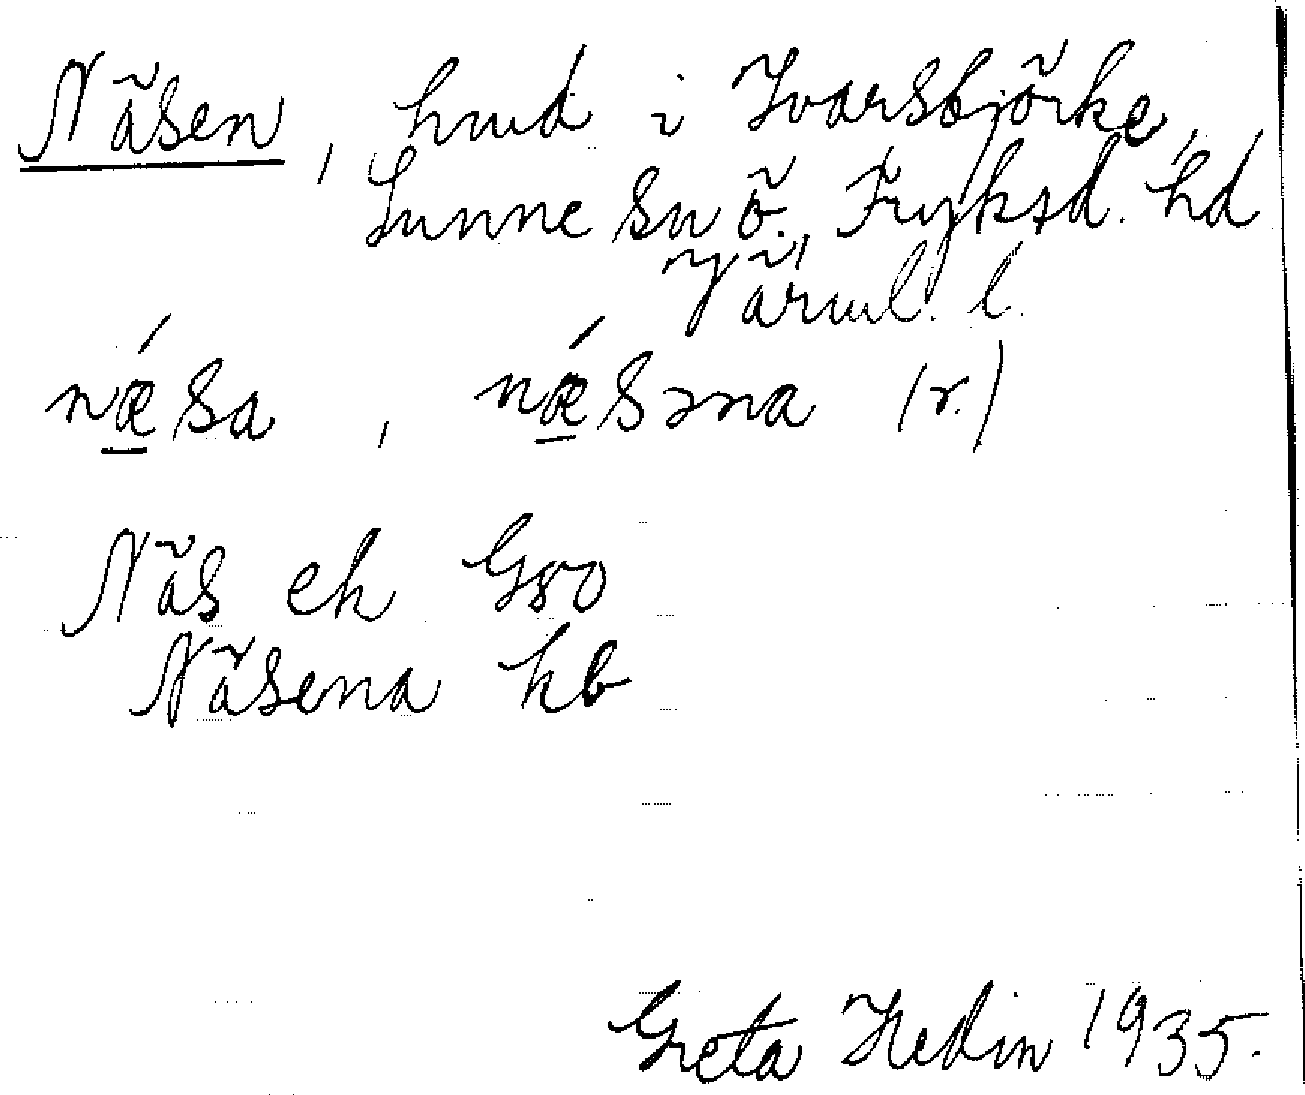 Näsen, hmd i Ivarsbjörke,
Sunne sn ö. Fryksd. hd
Värml. l.
nǽ̲sa, nǽ̲səna (r.)
Näs ek G80
Näsena kb
Greta Hedin 1935.